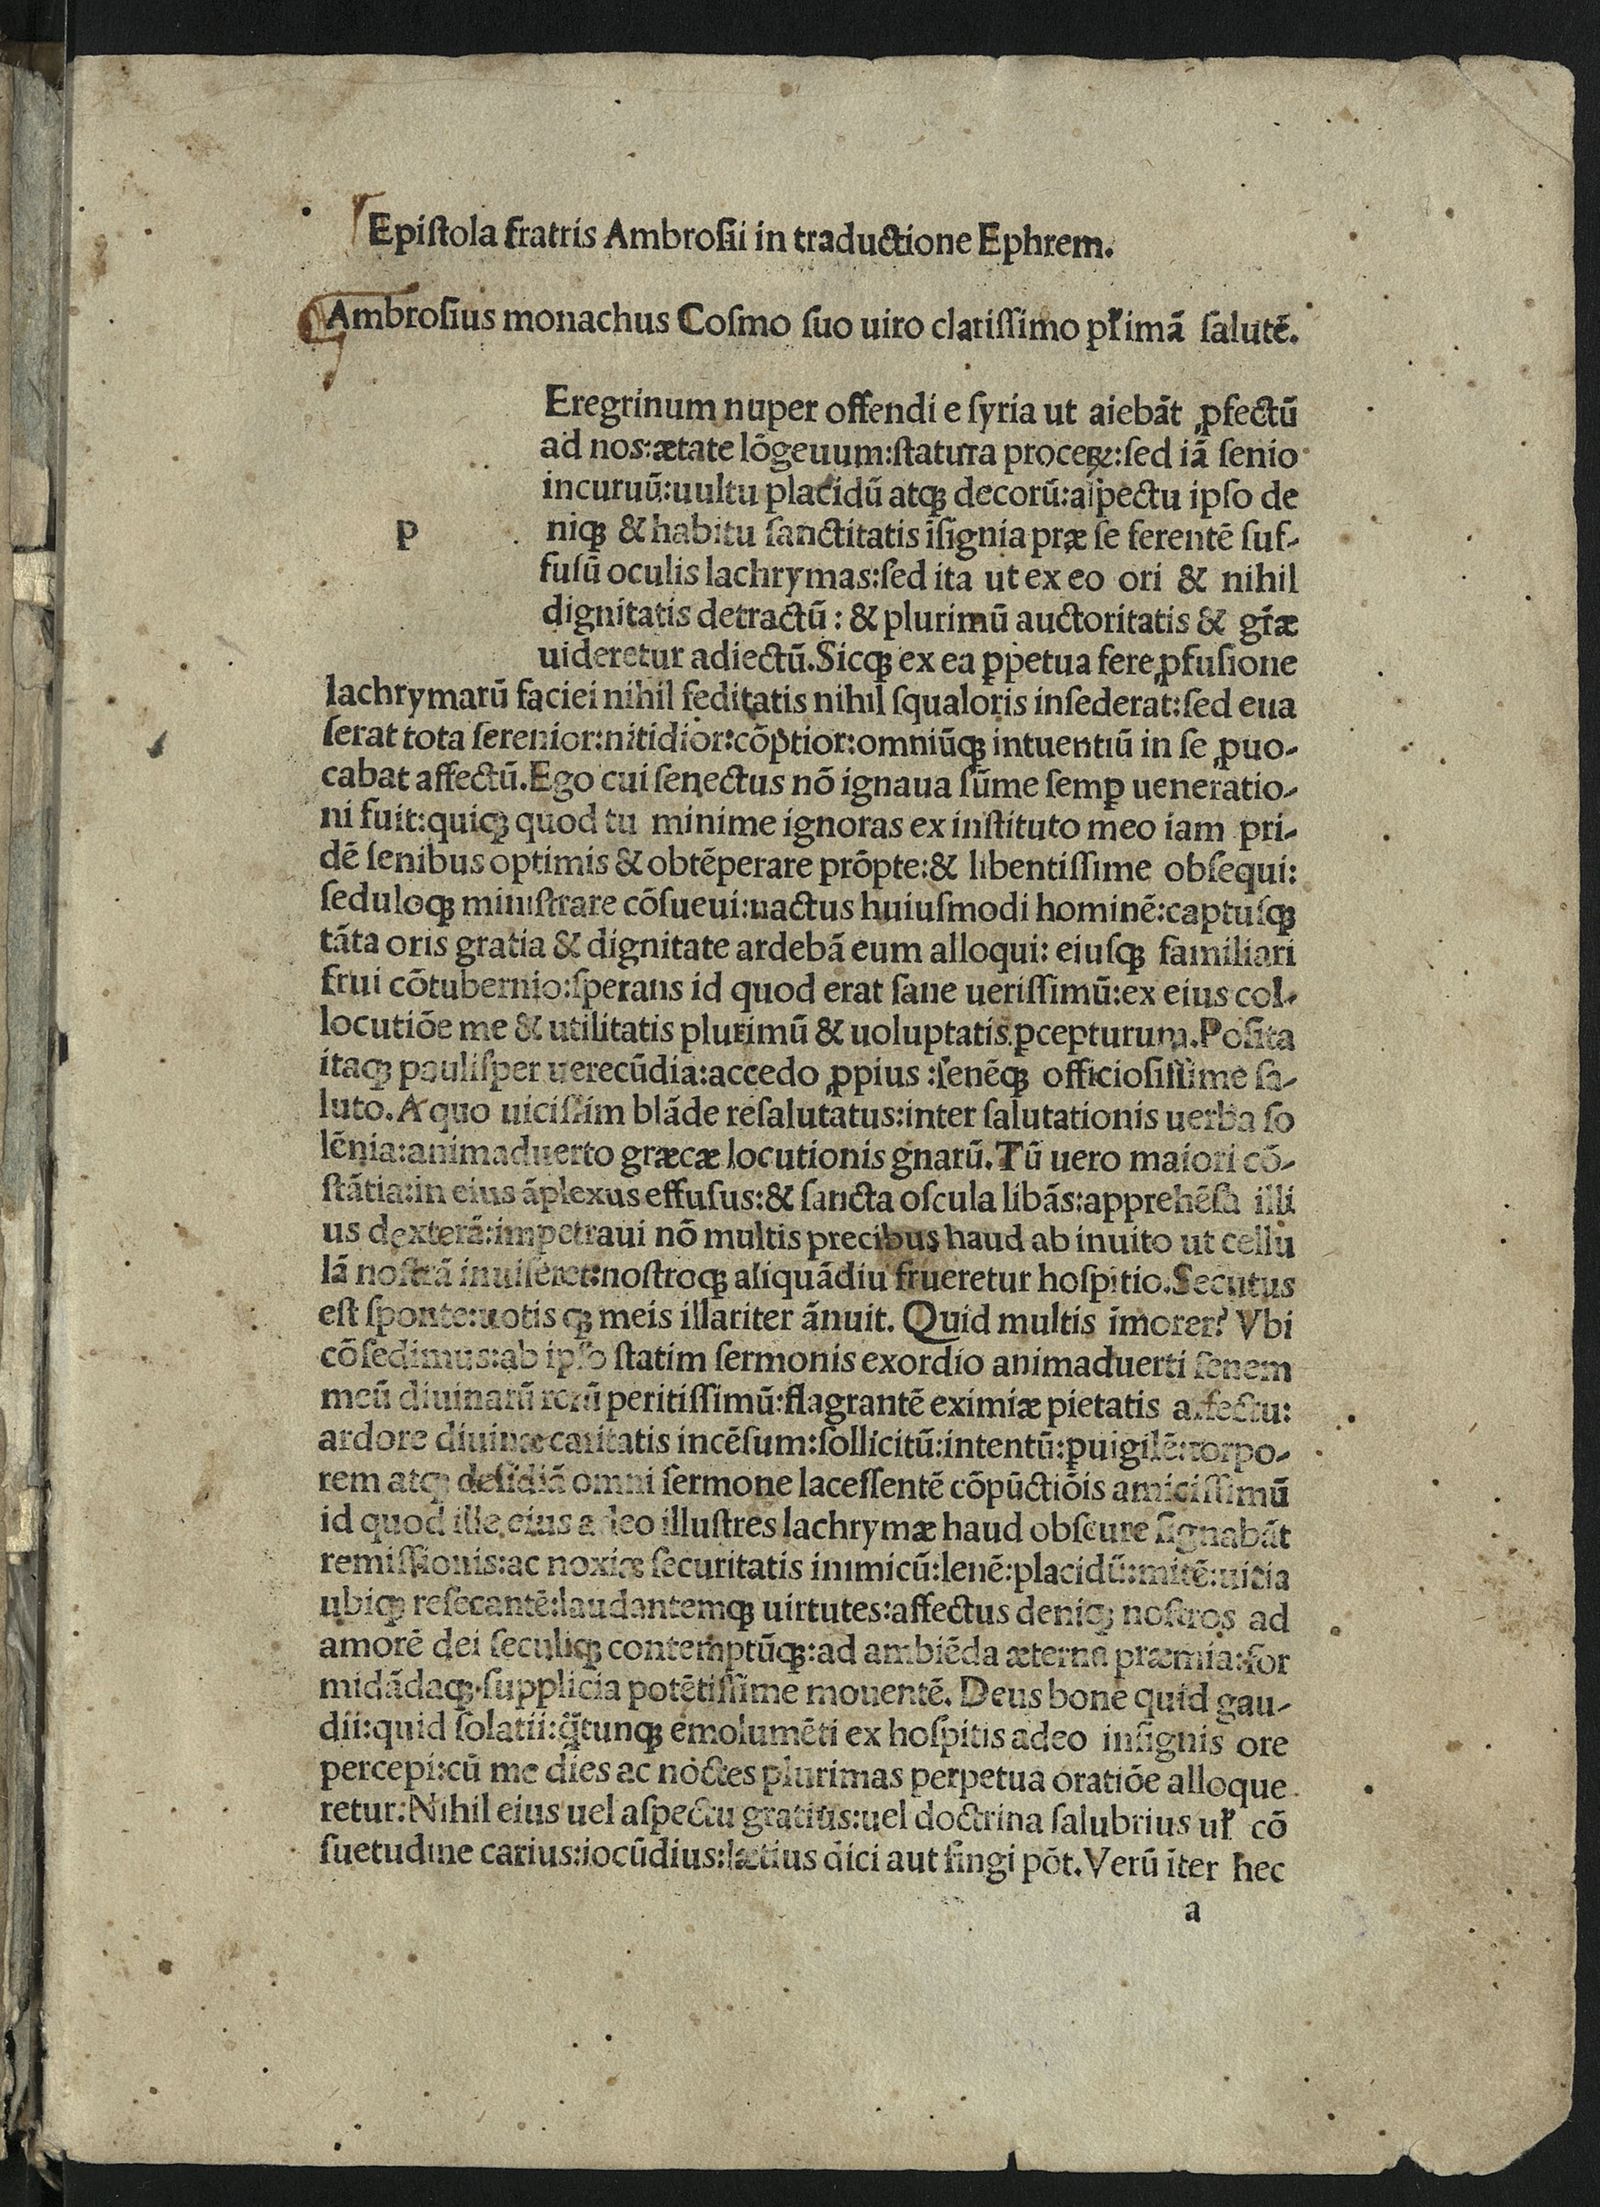 Epiſtola fratris Ambroſii in traductione Ephrem.
Ambroſius monachus Coſmo ſuo uiro clariſſimo pꝉimā ſalutē.
Eregrinum nuper offendi e ſyria ut aiebāt ꝓfectū
ad nos:ætate lōgeuum:ſtatura proceꝝ:ſed iā ſenio
incuruū:uultu placidū atqꝫ decorū:aſpectu ipſo de
p niqꝫ & habitu ſanctitatis īſignia præ ſe ferentē ſuf-
fuſū oculis lachrymas:ſed ita ut ex eo ori & nihil
dignitatis detractū: & plurimū auctoritatis & gr̄æ
uideretur adiectū.Sicqꝫ ex ea ꝑpetua fere ꝓfuſione
lachrymarū faciei nihil feditatis nihil ſqualoris inſederat:ſed eua
ſerat tota ſerenior:nitidior:cōptior:omniūqꝫ intuentiū in ſe ꝓuo-
cabat affectū.Ego cui ſenectus nō ignaua ſūme ſemꝑ ueneratio-
ni fuit:quiqꝫ quod tu minime ignoras ex inſtituto meo iam pri-
dē ſenibus optimis & obtēperare prōpte:& libentiſſime obſequi:
ſeduloqꝫ miniſtrare cōſueui:nactus huiuſmodi hominē:captuſqꝫ
tāta oris gratia & dignitate ardebā eum alloqui: eiuſqꝫ familiari
frui cōtubernio:ſperans id quod erat ſane ueriſſimū:ex eius col-
locutiōe me & utilitatis plurimū & uoluptatis ꝑcepturum.Poſita
itaqꝫ pauliſper uerecūdia:accedo ꝓpius :ſenēqꝫ officioſiſſime ſa-
luto.A quo uiciſſim blāde reſalutatus:inter ſalutationis uerba ſo
lēnia:animaduerto græcæ locutionis gnarū.Tū uero maiori cō-
ſtātia:in eius āplexus effuſus:& ſancta oſcula libās:apprehēſa illi
us dexterā:impetraui nō multis precibus haud ab inuito ut cellu
lā noſtrā inuiſeret:noſtroqꝫ aliquādiu frueretur hoſpitio.Secutus
eſt ſponte:uotis qꝫ meis illariter ānuit. Quid multis īmorer? Vbi
cōſedimus:ab ipſo ſtatim ſermonis exordio animaduerti ſenem
meū diuinarū rerū peritiſſimū:flagrantē eximiæ pietatis affectu:
ardore diuinæ caritatis incēſum:ſollicitū:intentū:puigilē:torpo-
rem atqꝫ deſidiā omni ſermone laceſſentē cōpūctiōis amiciſſimū
id quod ille eius adeo illuſtres lachrymæ haud obſcure ſignabāt
remiſſionis:ac noxiæ ſecuritatis inimicū:lenē:placidū:mitē:uitia
ubiqꝫ reſecantē:laudantemqꝫ uirtutes:affectus deniqꝫ noſtros ad
amorē dei ſeculiqꝫ contemptūqꝫ:ad ambiēda æterna præmia:for
midādaqꝫ ſupplicia potētiſſime mouentē. Deus bone quid gau-
dii:quid ſolatii:q̄tunqꝫ emolumēti ex hoſpitis adeo inſignis ore
percepi:cū me dies ac noctes plurimas perpetua oratiōe alloque
retur.Nihil eius uel aſpectu gratius:uel doctrina ſalubrius uꝉ cō
ſuetudine carius:iocūdius:lætius dici aut fingi pōt.Verū īter hec
a